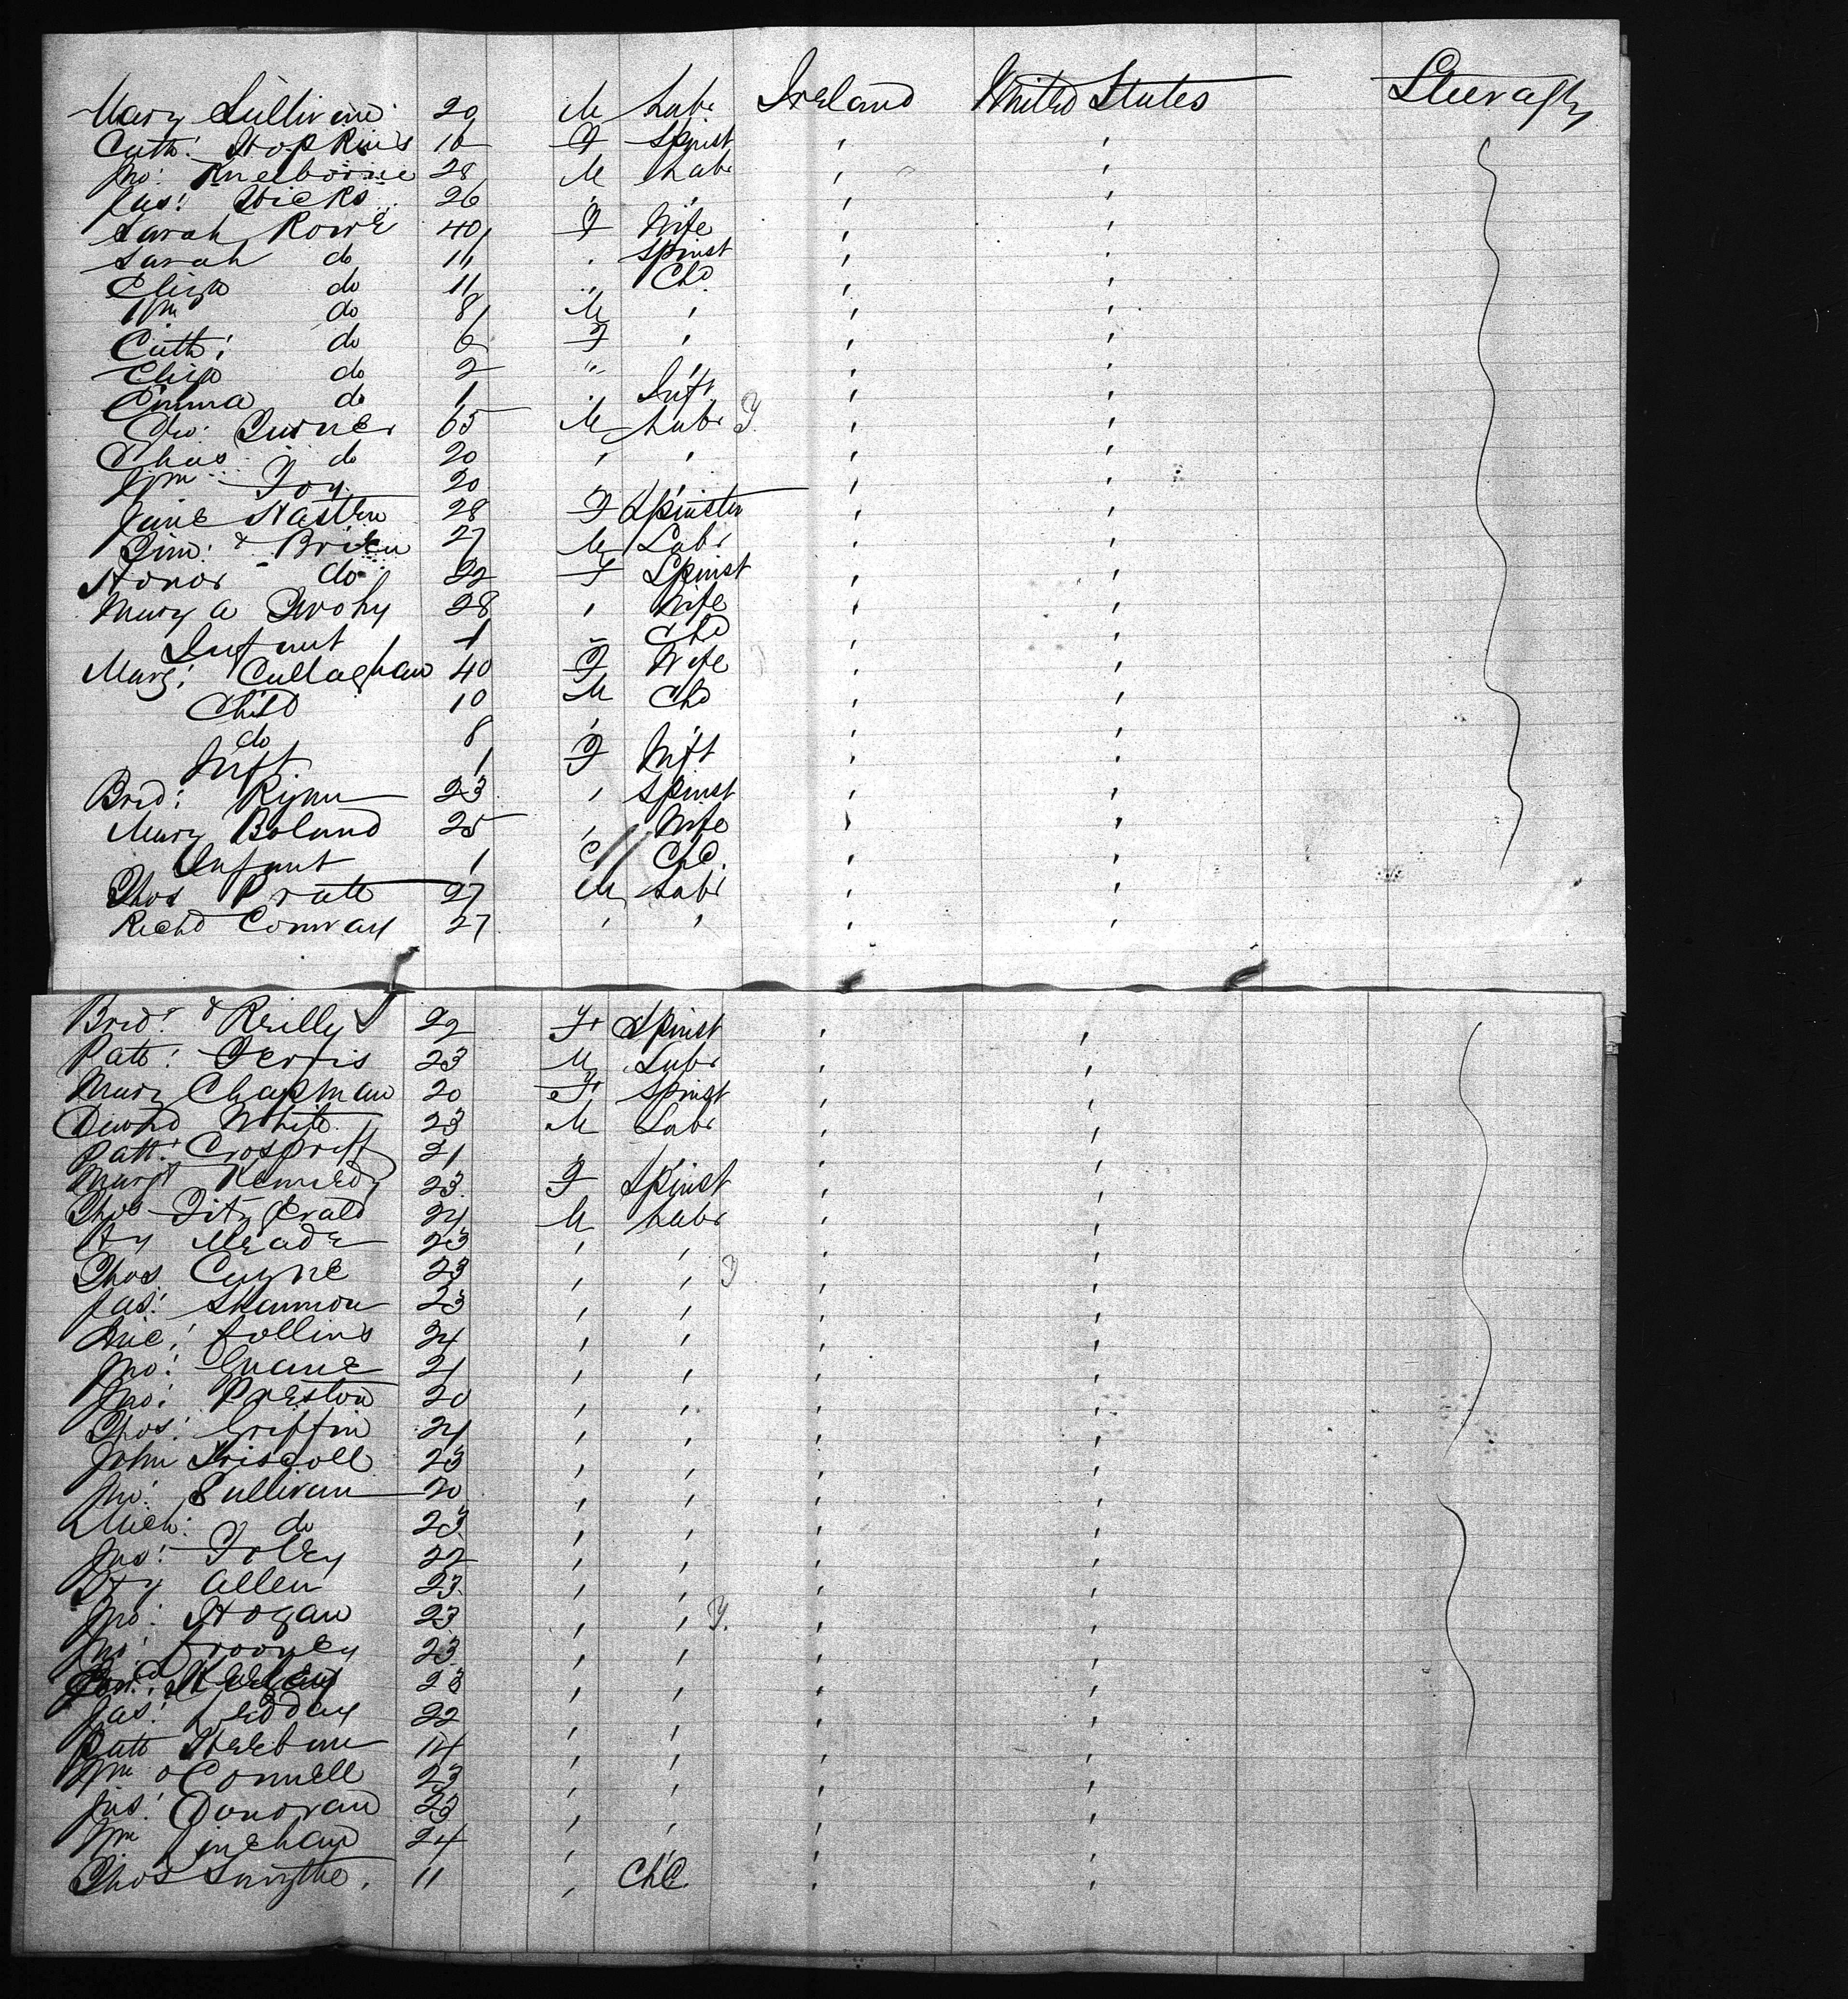 Mary Sullivan 20 M Labr Ireland United States Steerage
Cath: Hopkins 16 F Spinst
Jno: 28 M Labr
Jas: Hicks 26
Sarah Rowe 40 F Wife
Sarah do 14 Spinst
Eliza do 11 " Chd
Wm do 8 M
Cath: do 6 F
Eliza do 2 "
Emma do 1 Inft
Geo: Turner 65 M Labr
Chas do 20
Wm Foy 20
Jane 28 F Spinster
Tim: O Brien 27 M Labr
Honor do 22 F Spinst
Mary A Twohy 28 Wife
Infant 1 Chd
Marg: Callaghan 40 F Wife
Child 10 M Chd
do 8
Inft 1 F Inft
Brid: Ryan 23 Spinst
Mary Boland 25 Wife
Infant 1 Chd.
Thos Pratt 27 M Labr
Richd Conway 27
Brid: O Reilly 22 F Spinst
Patk: Ferris 23 M Labr
Mary Chapman 20 F Spinst
Edwd White 23 M Labr
Patk: 21
Margt Kennedy 23 F Spinst
Thos Fitzgerald 24 M Labr
Hy Meade 23
Thos Coyne 23
Jas: Shannon 23
Mic: Collins 24
Jno: Guane 21
Jno: Preston 20
Thos: Griffin 24
John Driscoll 23
Jno: Sullivan 20
Mich: do 23
Jas: Foley 22
Hy Allen 23
Jno: Hogan 23
Jno: 23
23
Jas: Ledday 22
Patk 14
Wm O Connell 23
Jas: Donovan 23
Wm Linehan 24
Thos Smythe. 11 Chd.